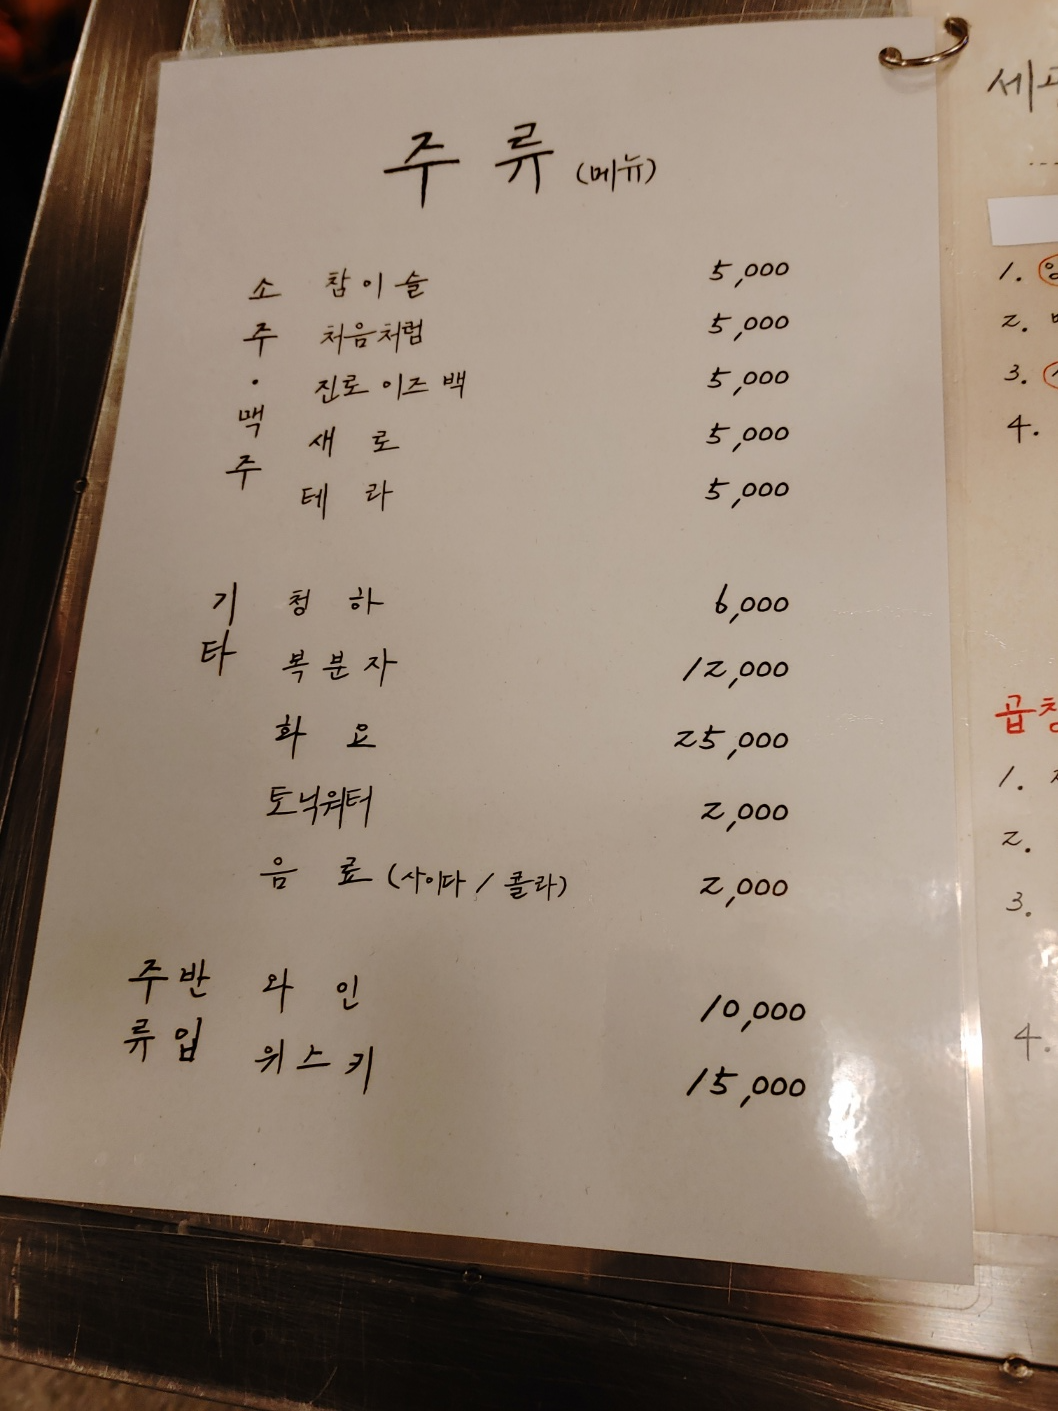 주 류 (메뉴)
소주·맥주
참이슬 5,000
처음처럼 5,000
진로 이즈 백 5,000
새로 5,000
테라 5,000
기타
청하 6,000
복분자 12,000
화요 25,000
토닉워터 2,000
음료 (사이다 / 콜라) 2,000
주류 반입
와인 10,000
위스키 15,000
1.
2.
3.
4.
곱창
1.
2.
3.
4.